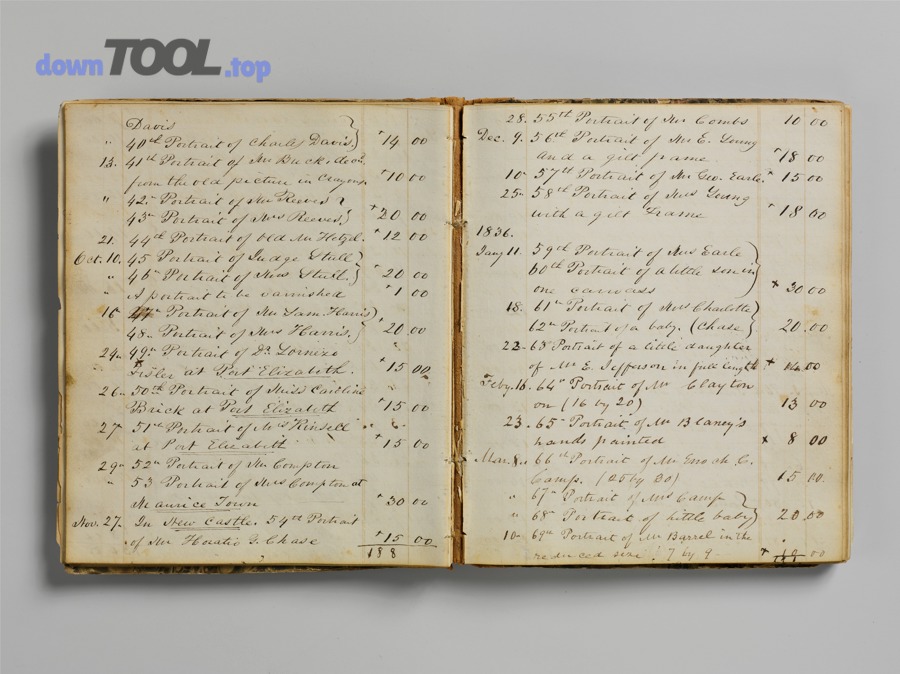 downTOOL.top
Davis
" 40th Portrait of Charles Davis } 14 00
13. 41th Portrait of Mr Buck, de
from the old picture in Crayons 10 00
" 42" Portrait of Mr Reeves
43" Portrait of Mrs Reeves } 20 00
21. 44th Portrait of Old Mr Hetzel. 12 00
Oct. 10. 45 Portrait of Judge Stull
" 46" Portrait of Mrs Stull. } 20 00
" A portrait to be varnished 1 00
16 47" Portrait of Mr Sam Harris
48" Portrait of Mrs Harris. } 20 00
24" 49" Portrait of Dr. Lorenzo
Fisler at Port Elizabeth. 15 00
26" 50th Portrait of Miss Caroline
Brick at Port Elizabeth 15 00
27 51th Portrait of Mrs Kinsell
at Port Elizabeth 15 00
29" 52" Portrait of Mr Compton
" 53 Portrait of Mrs Compton at
Maurice Town 30 00
Nov. 27. In New Castle. 54th Portrait
of Mr Horatio G. Chase 15 00
188
28. 55th Portrait of Mr Combs 10 00
Dec. 9. 56th Portrait of Mr E. Young
and a gilt frame 18 00
10" 57th Portrait of Mr Geo. Earle. 15 00
25" 58th Portrait of Mrs Young
with a gilt Frame 18 00
1836.
Jany 11. 59th Portrait of Mrs Earle
60th Portrait of a little son in
one canvass } 30 00
18. 61th Portrait of Mrs Charlotte
62" Portrait of a baby. (Chase } 20.00
22- 63 Portrait of a little daughter
of Mr E. Jefferson in full length 14.00
Feby. 16. 64" Portrait of Mr Clayton
on (16 by 20) 13 00
23. 65- Portrait of Mr Blaney's
hands painted 8 00
Mar. 8. 66th Portrait of Mr Enoch C.
Camp. (25 by 30) 15 00.
" 67" Portrait of Mrs Camp
" 68" Portrait of little baby } 20.00
10- 69th Portrait of Mr Barrel in the
reduced size ! 7 by 9 - 00